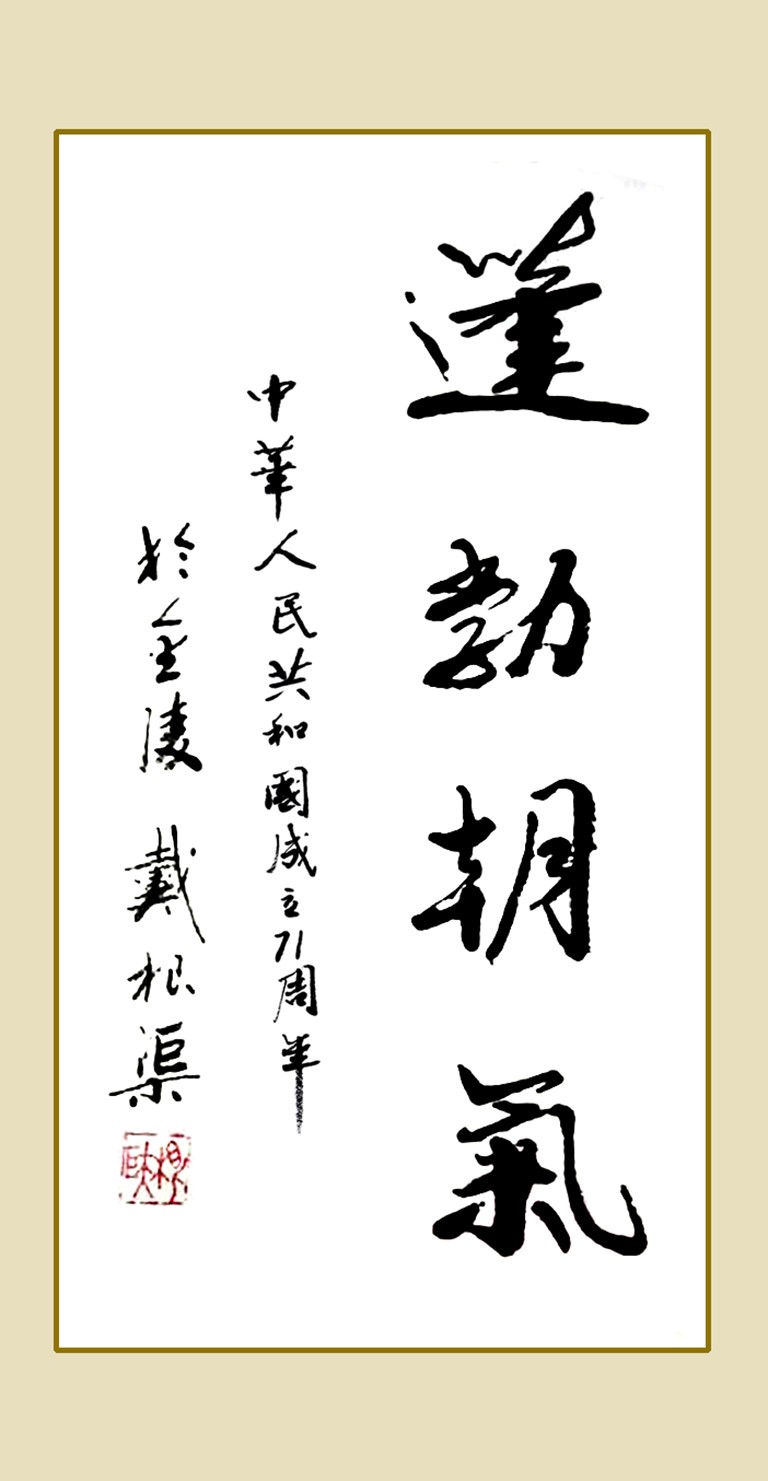 蓬勃朝氣
中華人民共和國成立71周年
於金陵 戴根渠